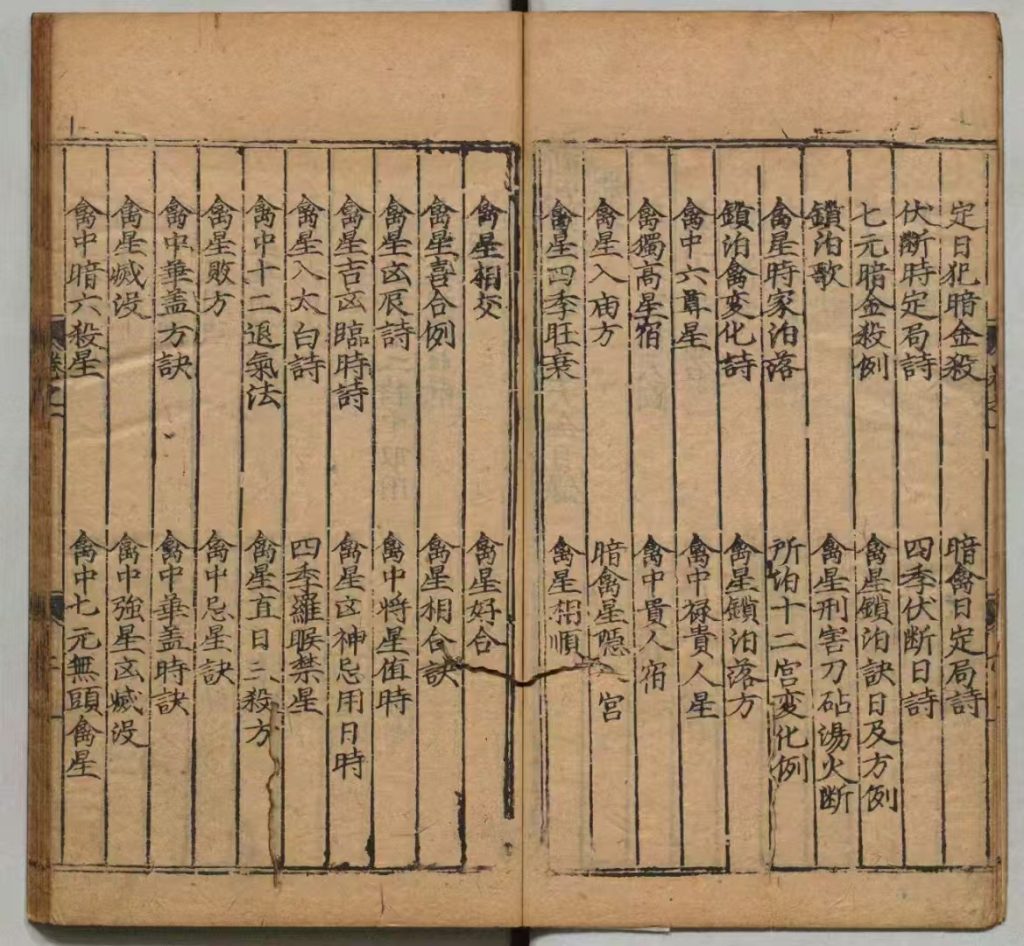 定日犯暗金殺 暗禽日定局詩
伏斷時定局詩 四季伏斷日詩
七元暗金殺例 禽星鎖泊訣日及方例
鎖泊歌 禽星刑害刀砧湯火斷
禽星時家泊落 所泊十二宮变化例
鎖泊禽变化詩 禽星鎖泊落方
禽中六尊星 禽中禄貴人星
禽獨高星宿 禽中貴人宿
禽星入庙方 暗禽星隱宮
禽星四季旺衰 禽星相順
禽星相交 禽星好合
禽星喜合例 禽星相合訣
禽星凶辰詩 禽中將星值時
禽星吉凶臨時詩 禽星凶神忌用日時
禽星入太白詩 四季羅睺禁星
禽中十二退氣法 禽星直日三殺方
禽星敗方 禽中忌星訣
禽中華盖方訣 禽中華盖時訣
禽星滅没 禽中強星凶滅没
禽中暗六殺星 禽中七元無頭禽星